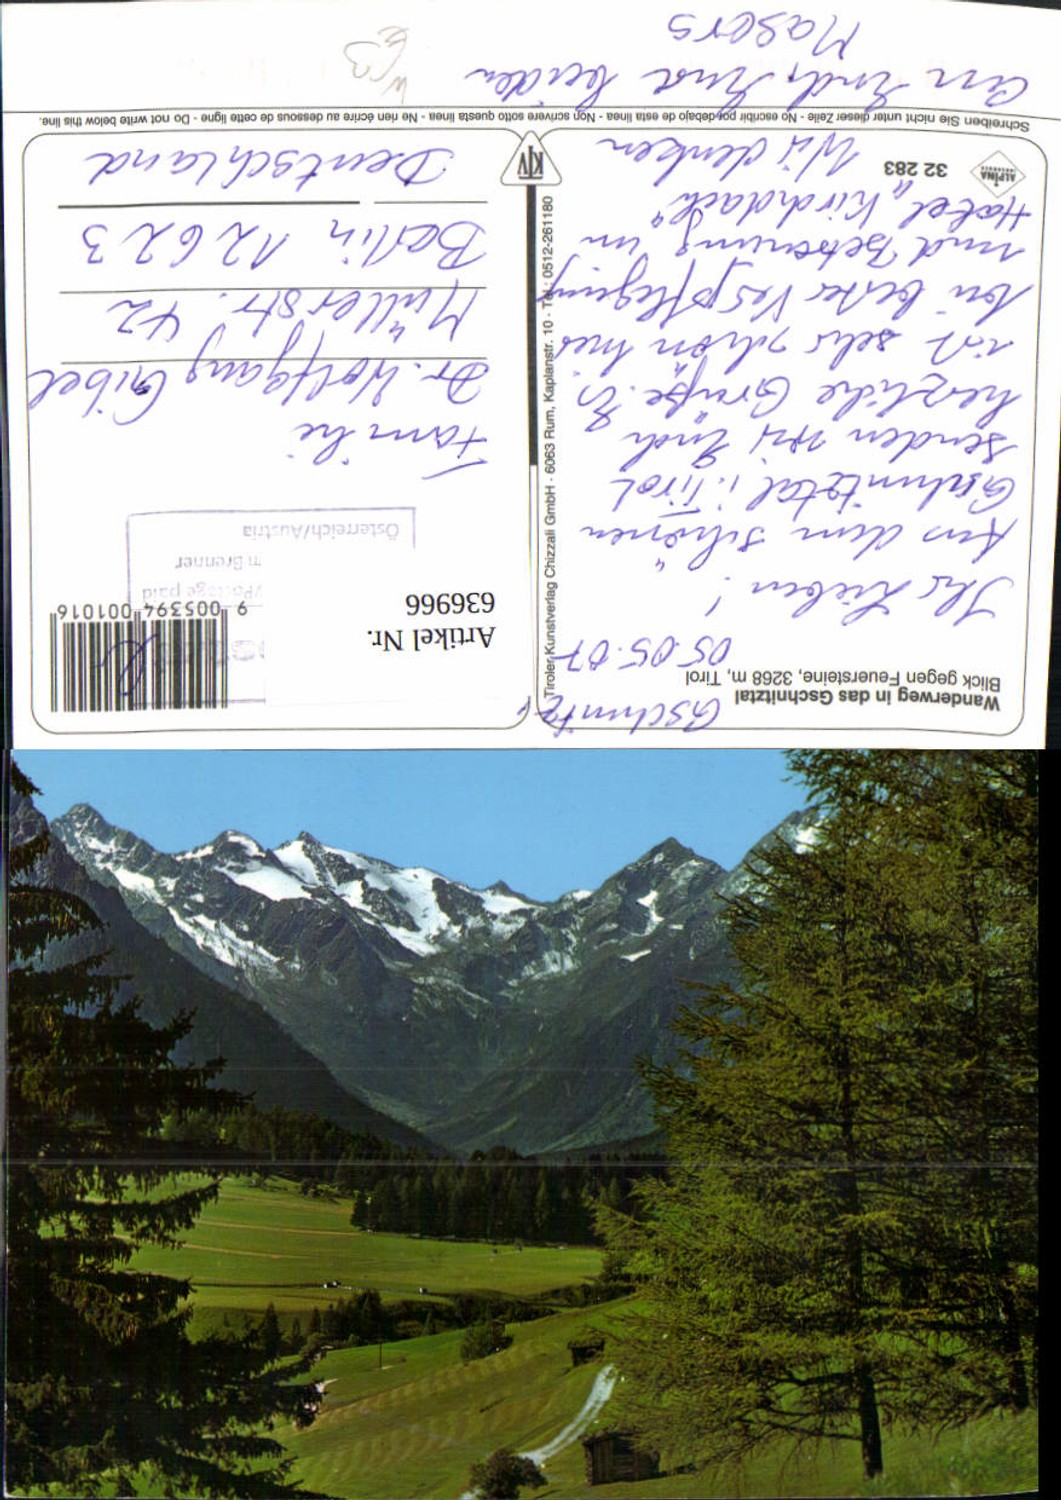 Wanderweg in das Gschnitztal
Blick gegen Feuersteine, 3268 m, Tirol
Gschnitz,
05.05.07
Ihr Lieben!
Aus dem schönen
Gschnitztal i. Tirol
senden wir Euch
herzliche Grüße. Es
ist sehr schön hier
bei bester Verpflegung
und Betreuung im
Hotel „Kirchdach“
Wir denken
32 283
ALPINA
Schreiben Sie nicht unter dieser Zeile - No escribir por debajo de esta línea - Non scrivere sotto questa linea - Ne rien écrire au dessous de cette ligne - Do not write below this line.
an Euch, Eure beiden
Masers
Tiroler Kunstverlag Chizzali GmbH · 6063 Rum, Kaplanstr. 10 · Tel.: 0512-261180
KTV
Artikel Nr.
636966
9 005394 001016
Postage paid
Brenner
Österreich/Austria
Familie
Dr. Wolfgang Gibel
Müllerstr. 42
Berlin 12623
Deutschland